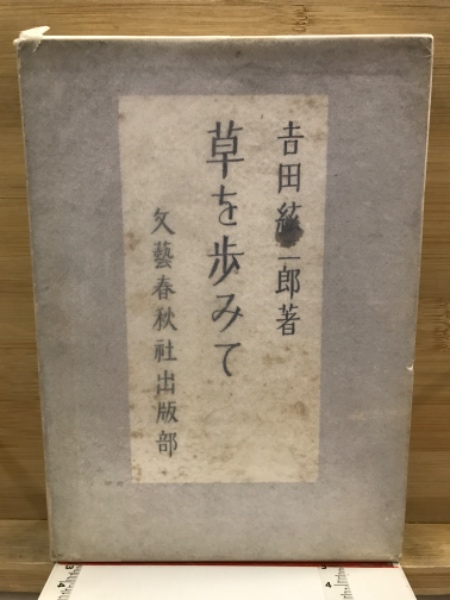 吉田絃二郎著
草を歩みて
文藝春秋社出版部
3
4